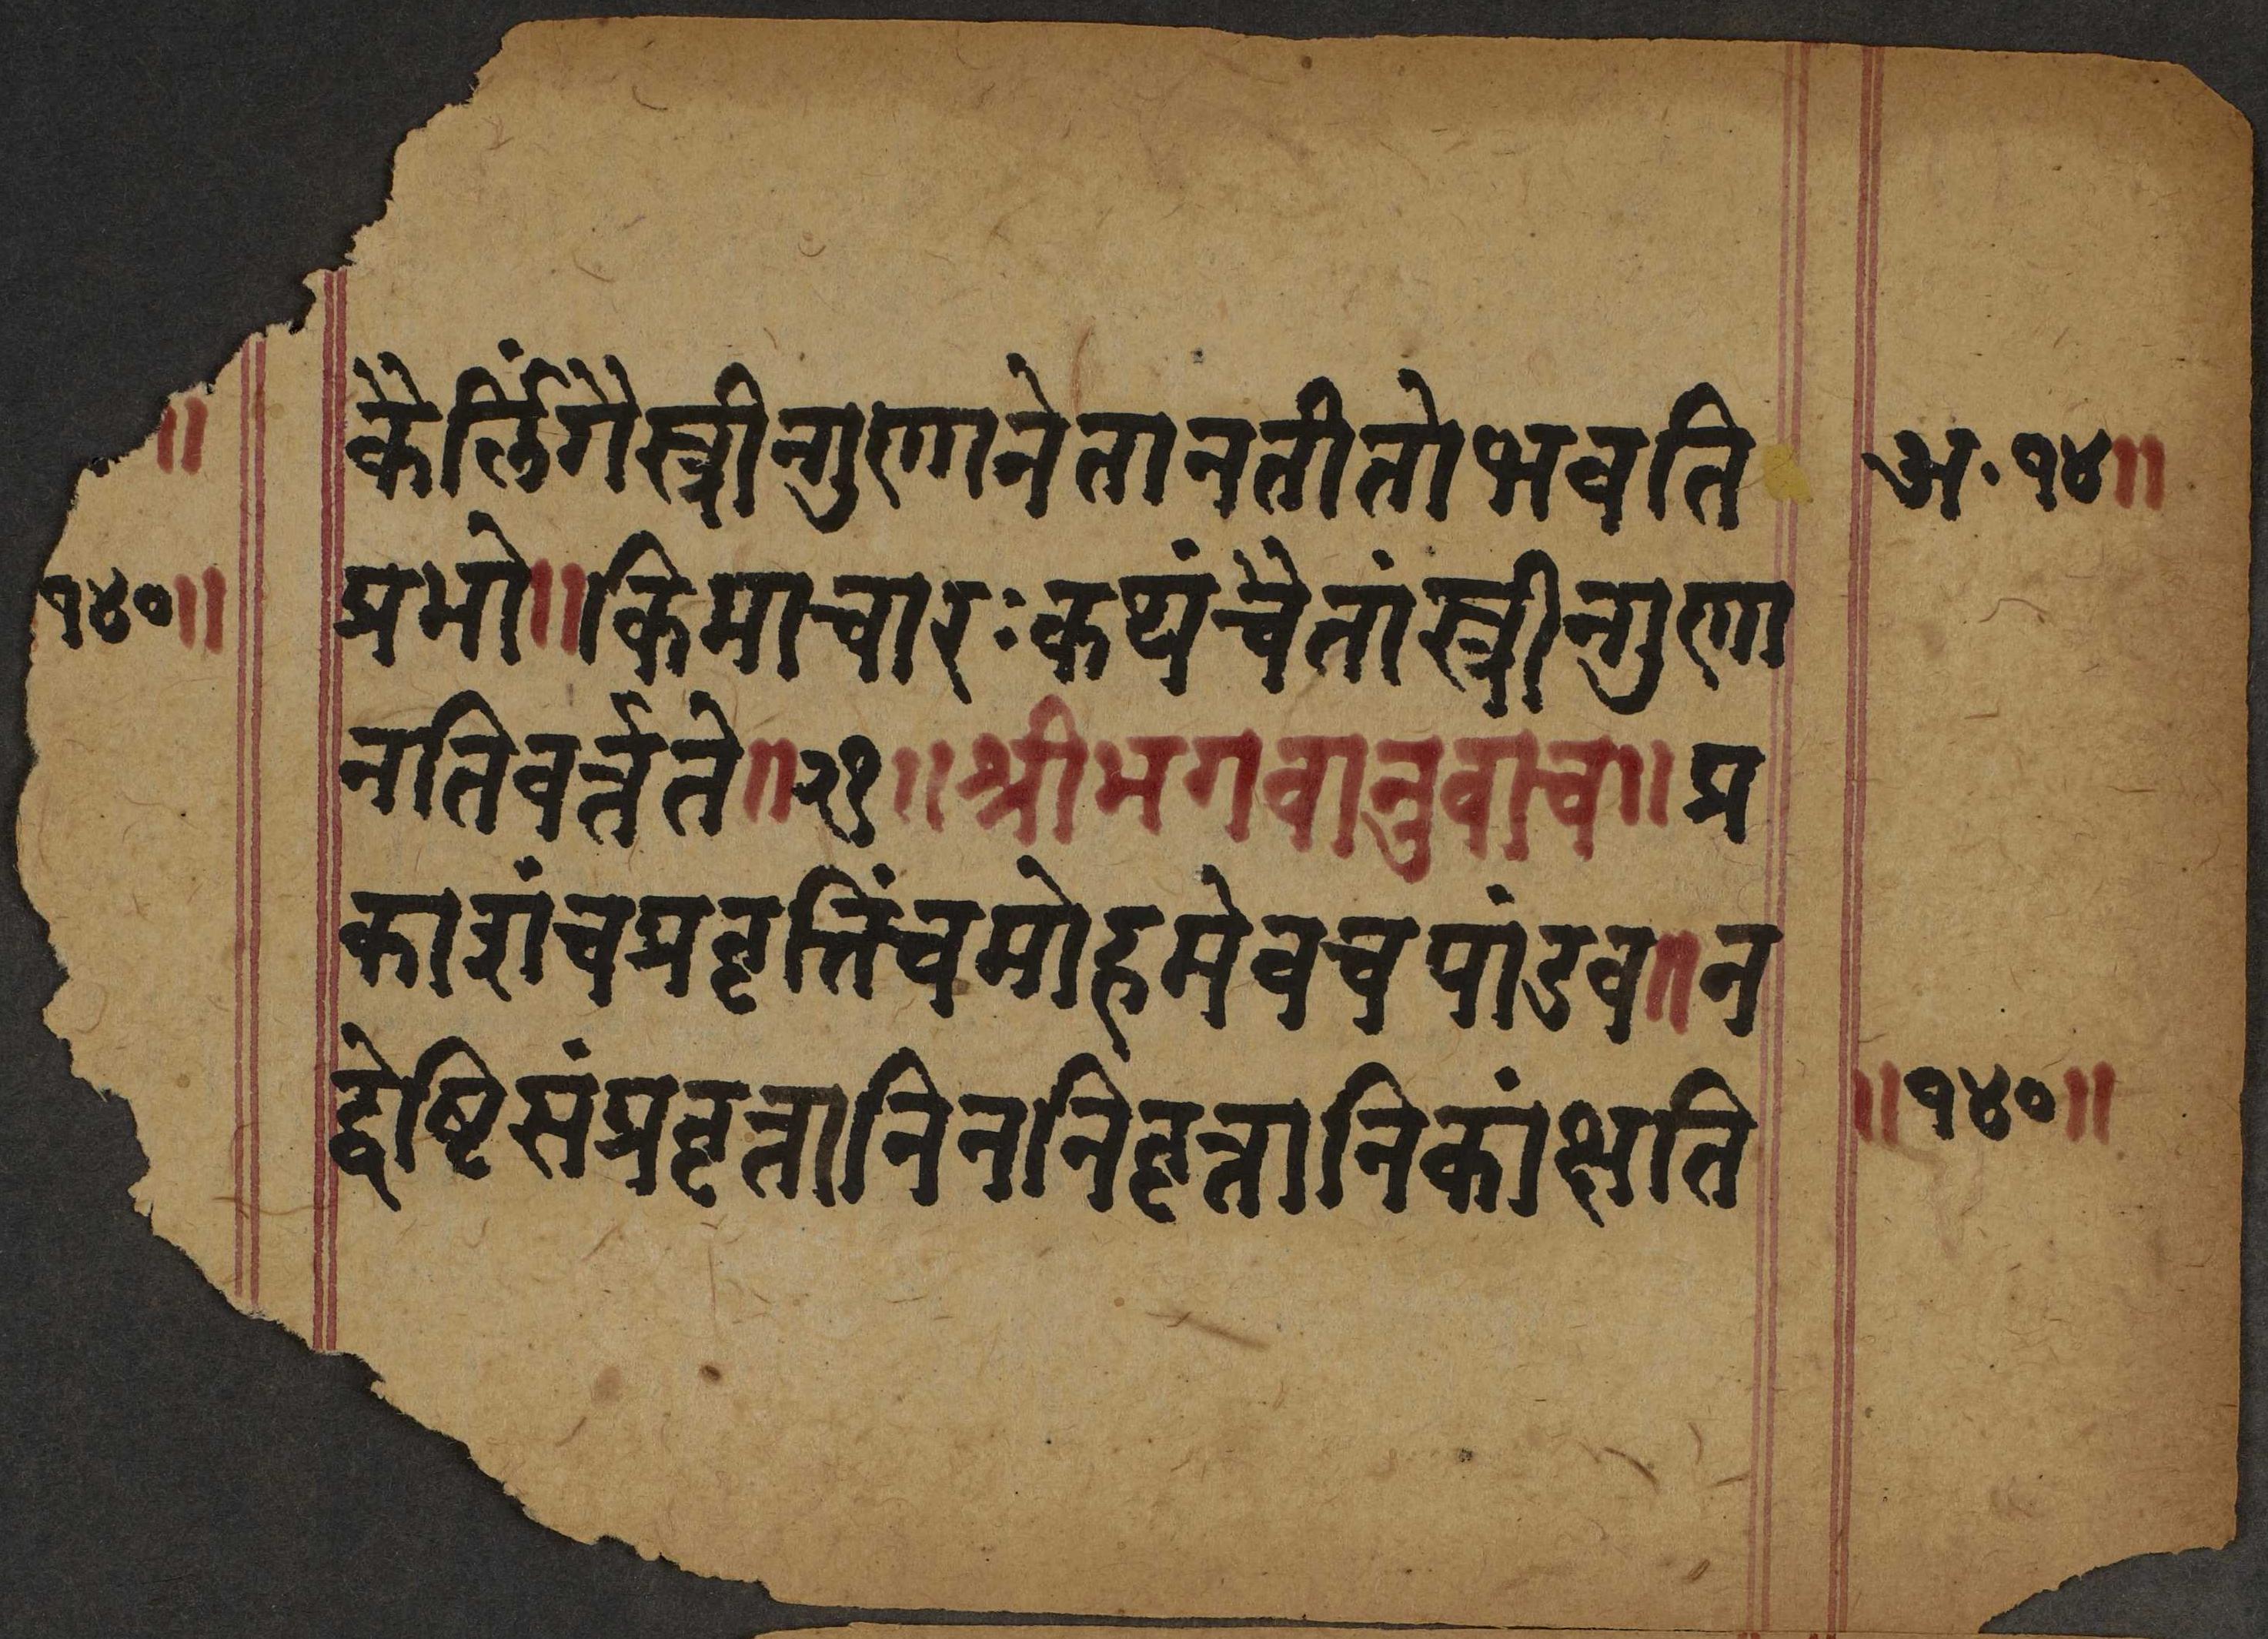 ॥ कैर्लिंगैस्त्रीन्गुणानेतानतीतोभवति अ॰१४॥
१४०॥ प्रभो॥किमाचारःकथंचैतांस्त्रीन्गुणा
नतिवर्त्तते॥२१॥श्रीभगवानुवाच॥प्र
काशंचप्रवृत्तिंचमोहमेवचपांडव॥न
द्वेष्टिसंप्रवृत्तानिननिवृत्तानिकांक्षति ॥१४०॥